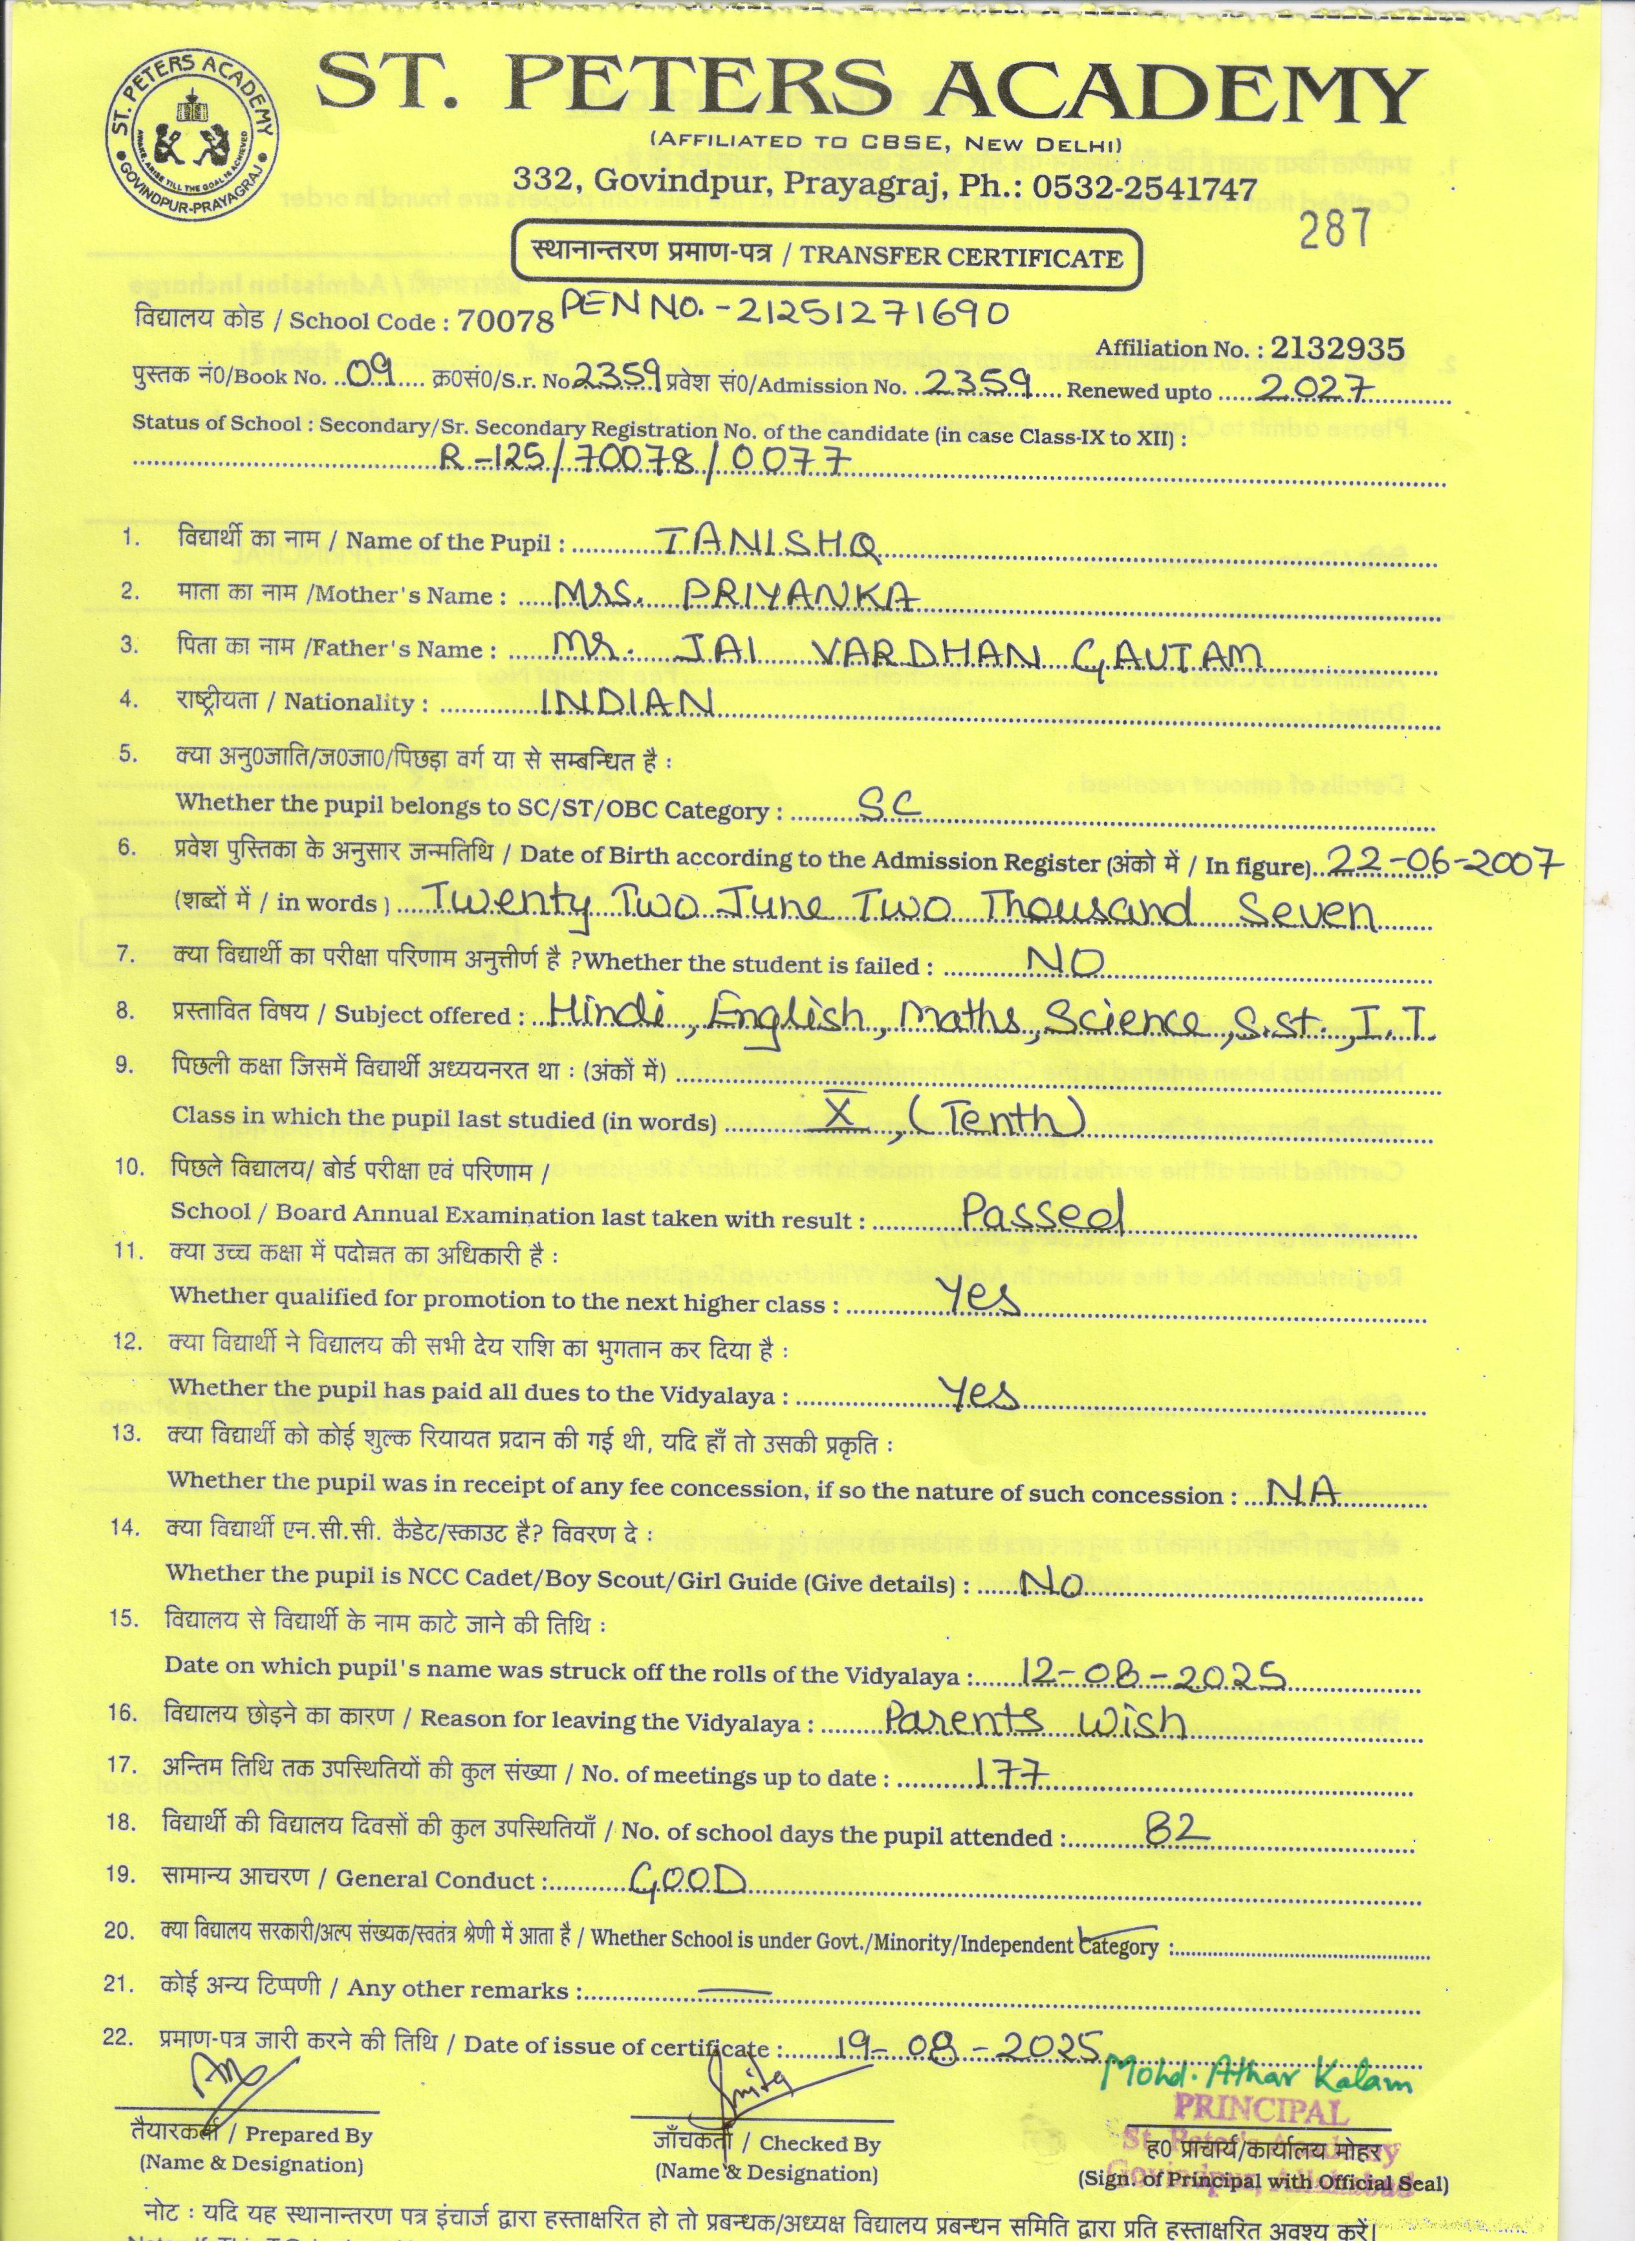 ST. PETERS ACADEMY
GOVINDPUR-PRAYAGRAJ
ST. PETERS ACADEMY
(AFFILIATED TO CBSE, NEW DELHI)
332, Govindpur, Prayagraj, Ph.: 0532-2541747
287
स्थानान्तरण प्रमाण-पत्र / TRANSFER CERTIFICATE
विद्यालय कोड / School Code : 70078 PEN NO. - 21251271690
Affiliation No. : 2132935
पुस्तक नं0/Book No. 09 क्र0सं0/S.r. No. 2359 प्रवेश सं0/Admission No. 2359 Renewed upto 2027
Status of School : Secondary/Sr. Secondary Registration No. of the candidate (in case Class-IX to XII) :
R-125/70078/0077
1. विद्यार्थी का नाम / Name of the Pupil : TANISHQ
2. माता का नाम /Mother's Name : Mrs. PRIYANKA
3. पिता का नाम /Father's Name : Mr. JAI VARDHAN GAUTAM
4. राष्ट्रीयता / Nationality : INDIAN
5. क्या अनु0जाति/ज0जा0/पिछड़ा वर्ग या से सम्बन्धित है :
Whether the pupil belongs to SC/ST/OBC Category : SC
6. प्रवेश पुस्तिका के अनुसार जन्मतिथि / Date of Birth according to the Admission Register (अंको में / In figure) 22-06-2007
(शब्दों में / in words) Twenty Two June Two Thousand Seven
7. क्या विद्यार्थी का परीक्षा परिणाम अनुत्तीर्ण है ?Whether the student is failed : NO
8. प्रस्तावित विषय / Subject offered : Hindi, English, Maths, Science, S.st., I.T.
9. पिछली कक्षा जिसमें विद्यार्थी अध्ययनरत था : (अंकों में)
Class in which the pupil last studied (in words) X, (Tenth)
10. पिछले विद्यालय/ बोर्ड परीक्षा एवं परिणाम /
School / Board Annual Examination last taken with result : Passed
11. क्या उच्च कक्षा में पदोन्नत का अधिकारी है :
Whether qualified for promotion to the next higher class : Yes
12. क्या विद्यार्थी ने विद्यालय की सभी देय राशि का भुगतान कर दिया है :
Whether the pupil has paid all dues to the Vidyalaya : Yes
13. क्या विद्यार्थी को कोई शुल्क रियायत प्रदान की गई थी, यदि हाँ तो उसकी प्रकृति :
Whether the pupil was in receipt of any fee concession, if so the nature of such concession : NA
14. क्या विद्यार्थी एन.सी.सी. कैडेट/स्काउट है? विवरण दे :
Whether the pupil is NCC Cadet/Boy Scout/Girl Guide (Give details) : NO
15. विद्यालय से विद्यार्थी के नाम काटे जाने की तिथि :
Date on which pupil's name was struck off the rolls of the Vidyalaya : 12-08-2025
16. विद्यालय छोड़ने का कारण / Reason for leaving the Vidyalaya : Parents Wish
17. अन्तिम तिथि तक उपस्थितियों की कुल संख्या / No. of meetings up to date : 177
18. विद्यार्थी की विद्यालय दिवसों की कुल उपस्थितियाँ / No. of school days the pupil attended : 82
19. सामान्य आचरण / General Conduct : GOOD
20. क्या विद्यालय सरकारी/अल्प संख्यक/स्वतंत्र श्रेणी में आता है / Whether School is under Govt./Minority/Independent Category :
21. कोई अन्य टिप्पणी / Any other remarks :
22. प्रमाण-पत्र जारी करने की तिथि / Date of issue of certificate : 19-08-2025
Mohd. Athar Kalam
PRINCIPAL
St. Peter's Academy
Govindpur, Allahabad
तैयारकर्ता / Prepared By
(Name & Designation)
जाँचकर्ता / Checked By
(Name & Designation)
ह0 प्राचार्य/कार्यालय मोहर
(Sign. of Principal with Official Seal)
नोट : यदि यह स्थानान्तरण पत्र इंचार्ज द्वारा हस्ताक्षरित हो तो प्रबन्धक/अध्यक्ष विद्यालय प्रबन्धन समिति द्वारा प्रति हस्ताक्षरित अवश्य करें।